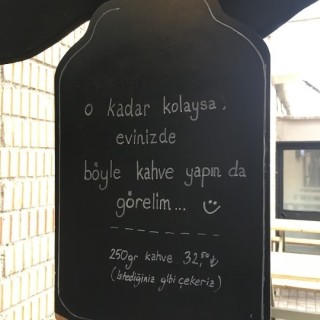 o kadar kolaysa,
evinizde
böyle kahve yapın da
görelim... ☺
250gr kahve 32,50 ₺
(İstediğiniz gibi çekeriz)